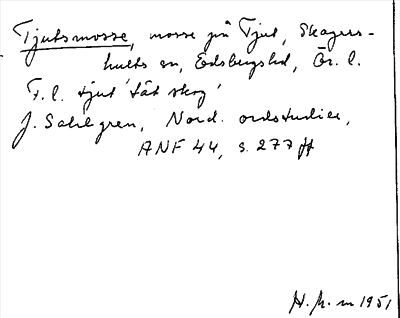 Tjutsmosse, mosse på Tjut, Skagers-
hults sn, Edsbergshd, Ör. l.
F.l. tjut 'tät skog'
J. Sahlgren, Nord. ordstudier,
ANF 44, s. 277 ff
1951